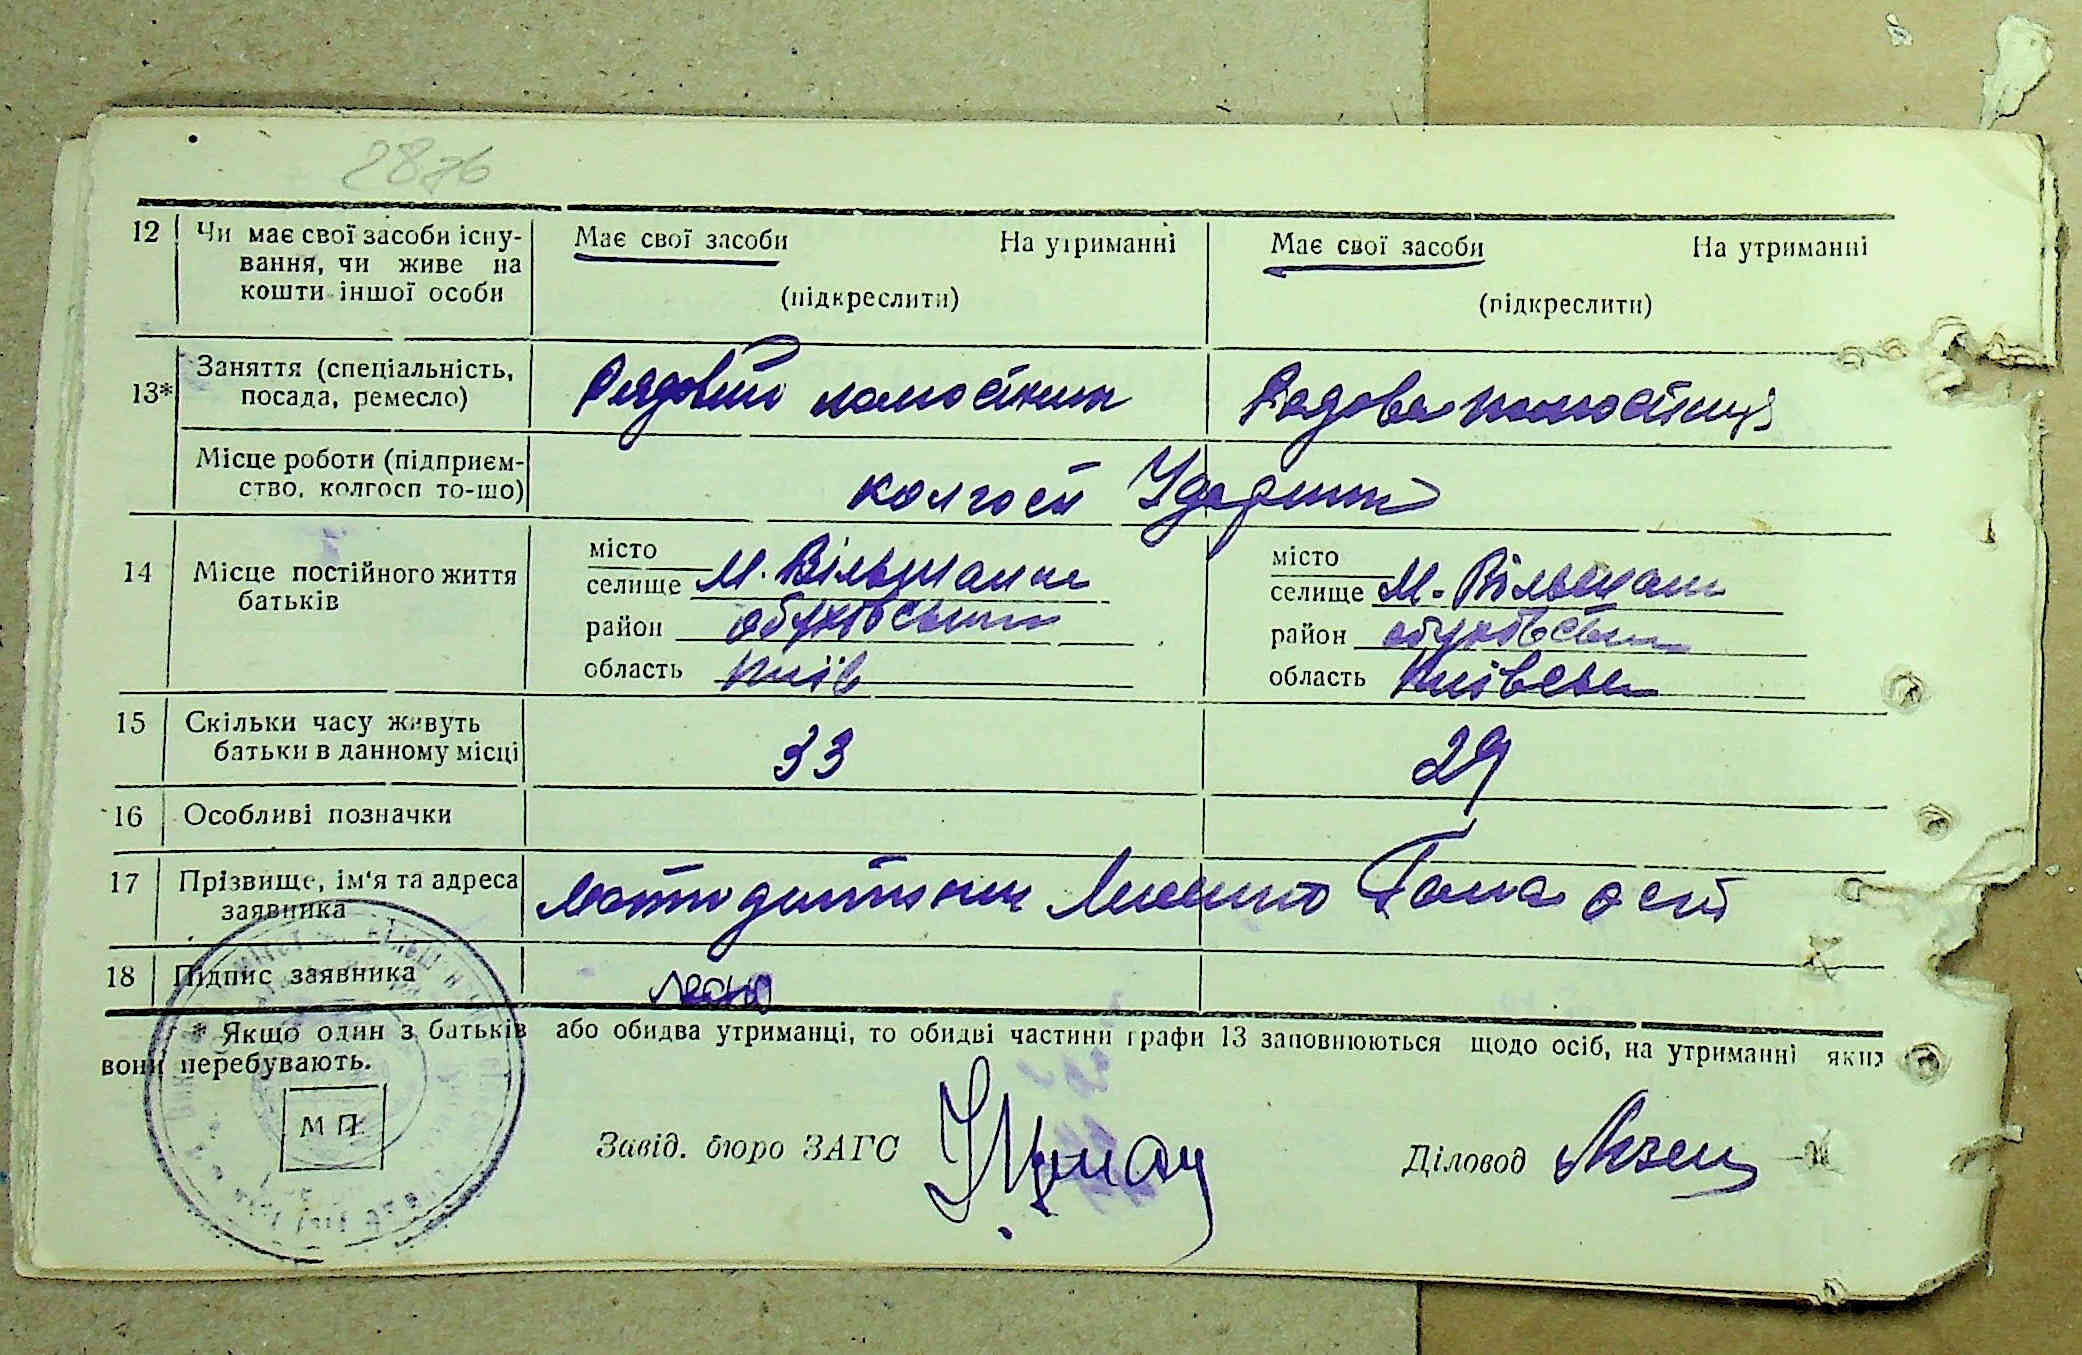 28зв
12 Чи має свої засоби існу-
вання, чи живе на
кошти іншої особи
Має свої засоби На утриманні
(підкреслити)
Має свої засоби На утриманні
(підкреслити)
13* Заняття (спеціальність,
посада, ремесло)
Рядовий
Рядова
Місце роботи (підприєм-
ство, колгосп то-що)
колгосп Ударник
14 Місце постійного життя
батьків
місто
селище М. Вільшанка
район обухівський
область Київ
місто
селище М. Вільшан
район обухівськ
область Київськ
15 Скільки часу живуть
батьки в данному місці
33
29
16 Особливі позначки
17 Прізвище, ім'я та адреса
заявника
18 Підпис заявника
* Якщо один з батьків або обидва утриманці, то обидві частини графи 13 заповнюються щодо осіб, на утриманні яких
вони перебувають.
М П
Завід. бюро ЗАГС
Діловод